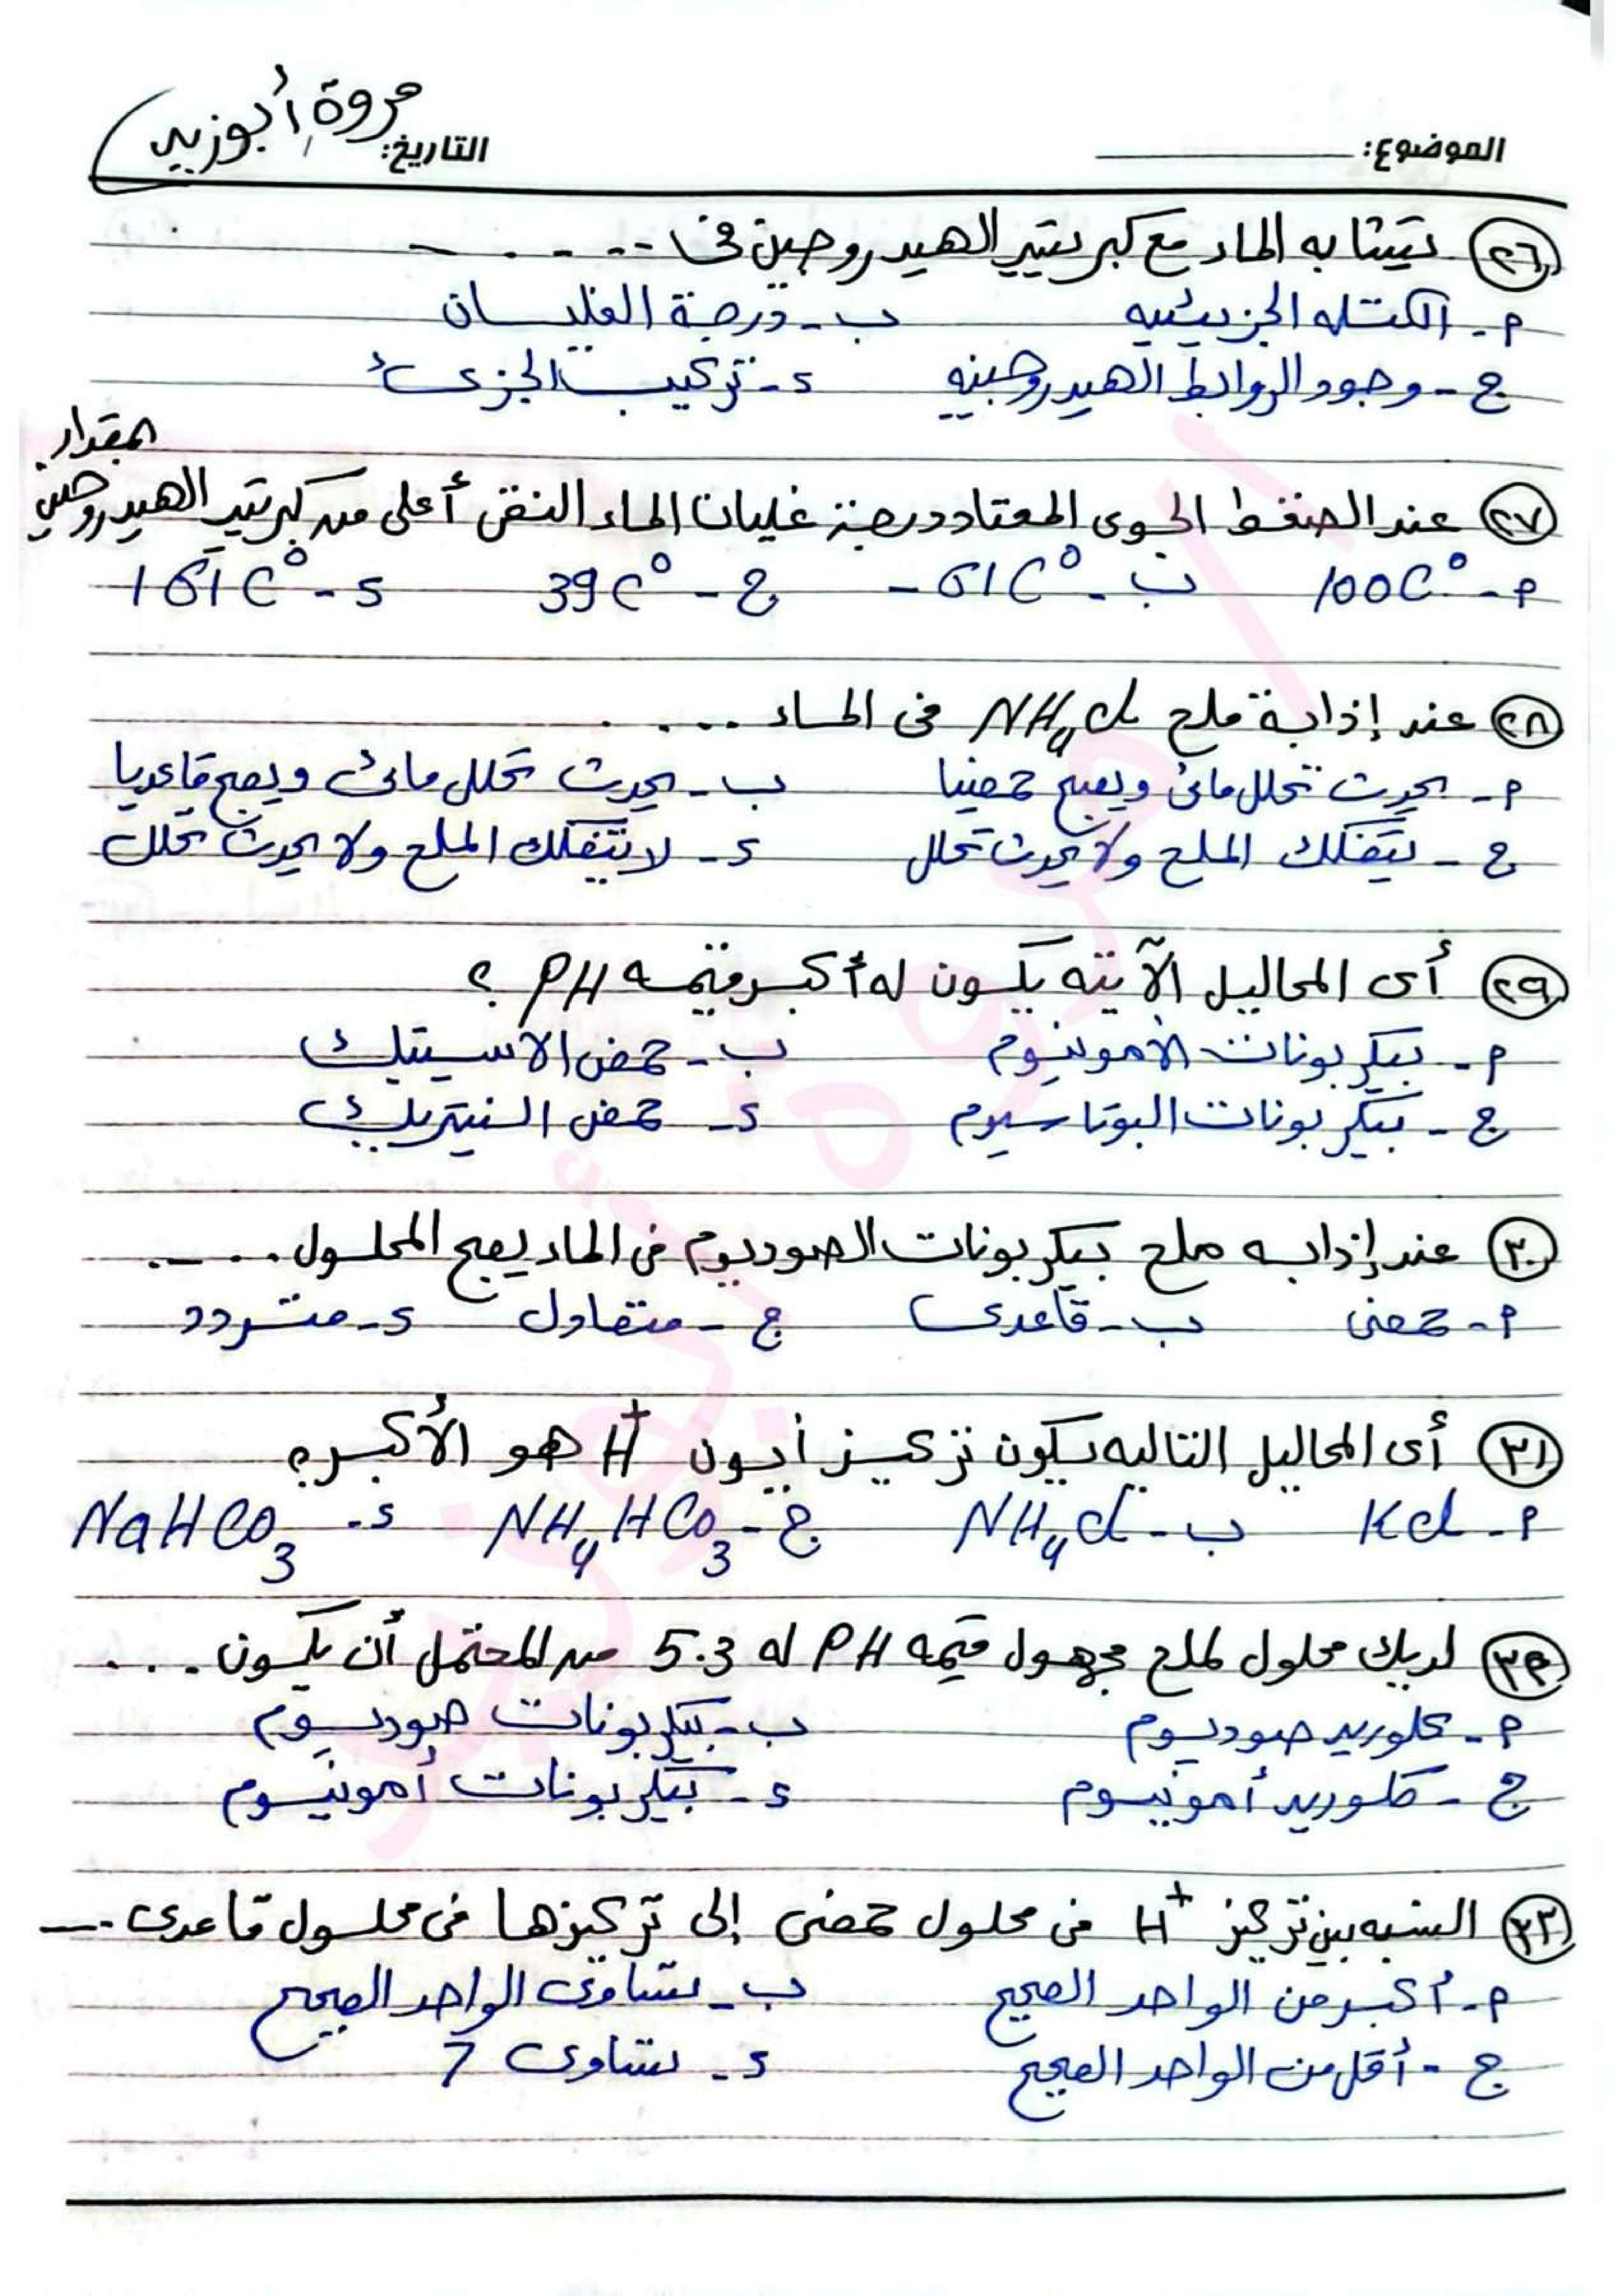 الموضوع:
التاريخ: مروة أبوزيد
٢٦ يتشابه الماء مع كبريتيد الهيدروجين فى .....
أ - الكتله الجزيئيه ب - درجة الغليان
ج - وجود الروابط الهيدروجينيه د - تركيب الجزىء
٢٧ عند الضغط الجوى المعتاد درجة غليان الماء النقى أعلى من كبريتيد الهيدروجين بمقدار
أ - 100C° ب - -61C° ج - 39C° د - 161C°
٢٨ عند إذابة ملح NH₄Cl فى الماء .....
أ - يحدث تحلل مائى ويصبح حمضيا ب - يحدث تحلل مائى ويصبح قاعديا
ج - يتفكك الملح ولا يحدث تحلل د - لا يتفكك الملح ولا يحدث تحلل
٢٩ أى المحاليل الآتيه يكون له أكبر قيمه PH ؟
أ - بيكربونات الأمونيوم ب - حمض الاسيتيك
ج - بيكربونات البوتاسيوم د - حمض النيتريك
٣٠ عند إذابه ملح بيكربونات الصوديوم فى الماء يصبح المحلول .....
أ - حمضى ب - قاعدى ج - متعادل د - متردد
٣١ أى المحاليل التاليه يكون تركيز أيون H⁺ هو الأكبر؟
أ - KCl ب - NH₄Cl ج - NH₄HCO₃ د - NaHCO₃
٣٢ لديك محلول لملح مجهول قيمه PH له 5.3 من المحتمل أن يكون ....
أ - كلوريد صوديوم ب - بيكربونات صوديوم
ج - كلوريد أمونيوم د - بيكربونات أمونيوم
٣٣ النسبه بين تركيز H⁺ فى محلول حمضى إلى تركيزها فى محلول قاعدى ....
أ - أكبر من الواحد الصحيح ب - تساوى الواحد الصحيح
ج - أقل من الواحد الصحيح د - تساوى 7